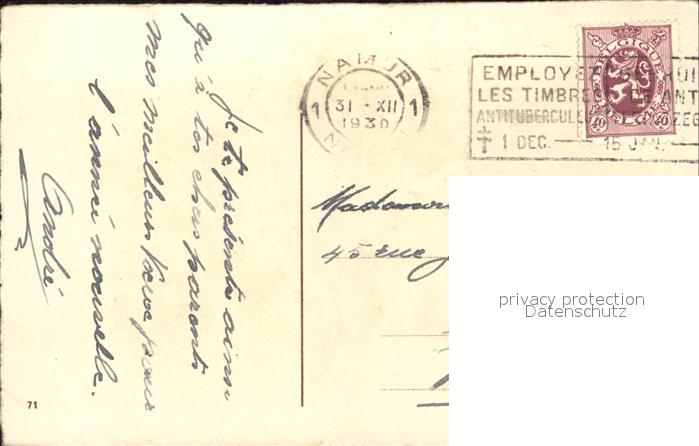 Je te présente ainsi
qu'à tes chers parents
mes meilleurs voeux pour
l'année nouvelle.
André
71
NAMUR
1 31-XII 1
1930
EMPLOYEZ
LES TIMBRES
ANTITUBERCULEUX
1 DEC. 15 JAN.
BELGIQUE
BELGIE
40 40
45 rue
privacy protection
Datenschutz